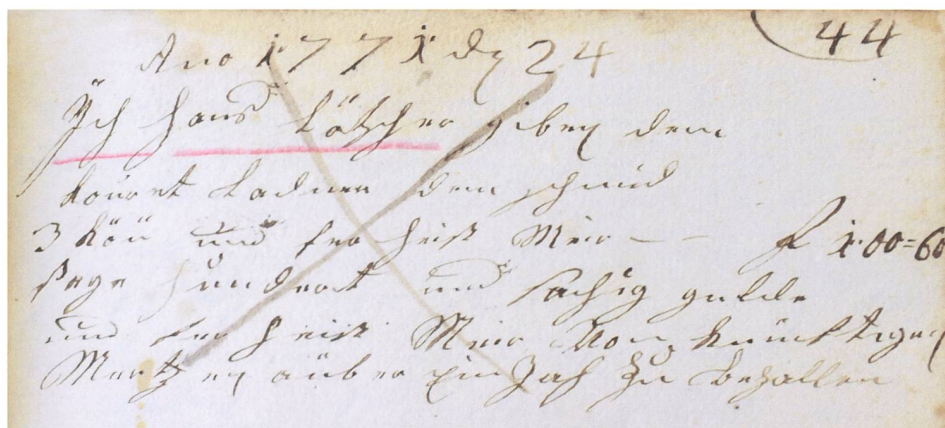 44
Ano 1771 dz 24
Ich Hans Lötscher giben dem
Conret Ladner dem schmid
3 Köü und fer heist Mir — — f 100=60
sage hundert und sächsig gulde
und fer heist Mir von künfftigen
Mertzen auber ein Jahr zu bezallen